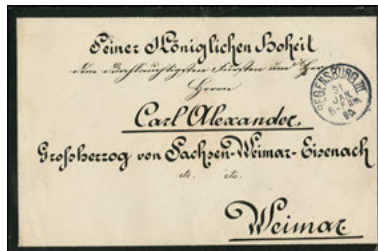 Seiner Königlichen Hoheit
dem durchlauchtigsten Fürsten und Herrn
Herrn
Carl Alexander,
Großherzog von Sachsen-Weimar-Eisenach
etc. etc.
Weimar
REGENSBURG III
31
JAN